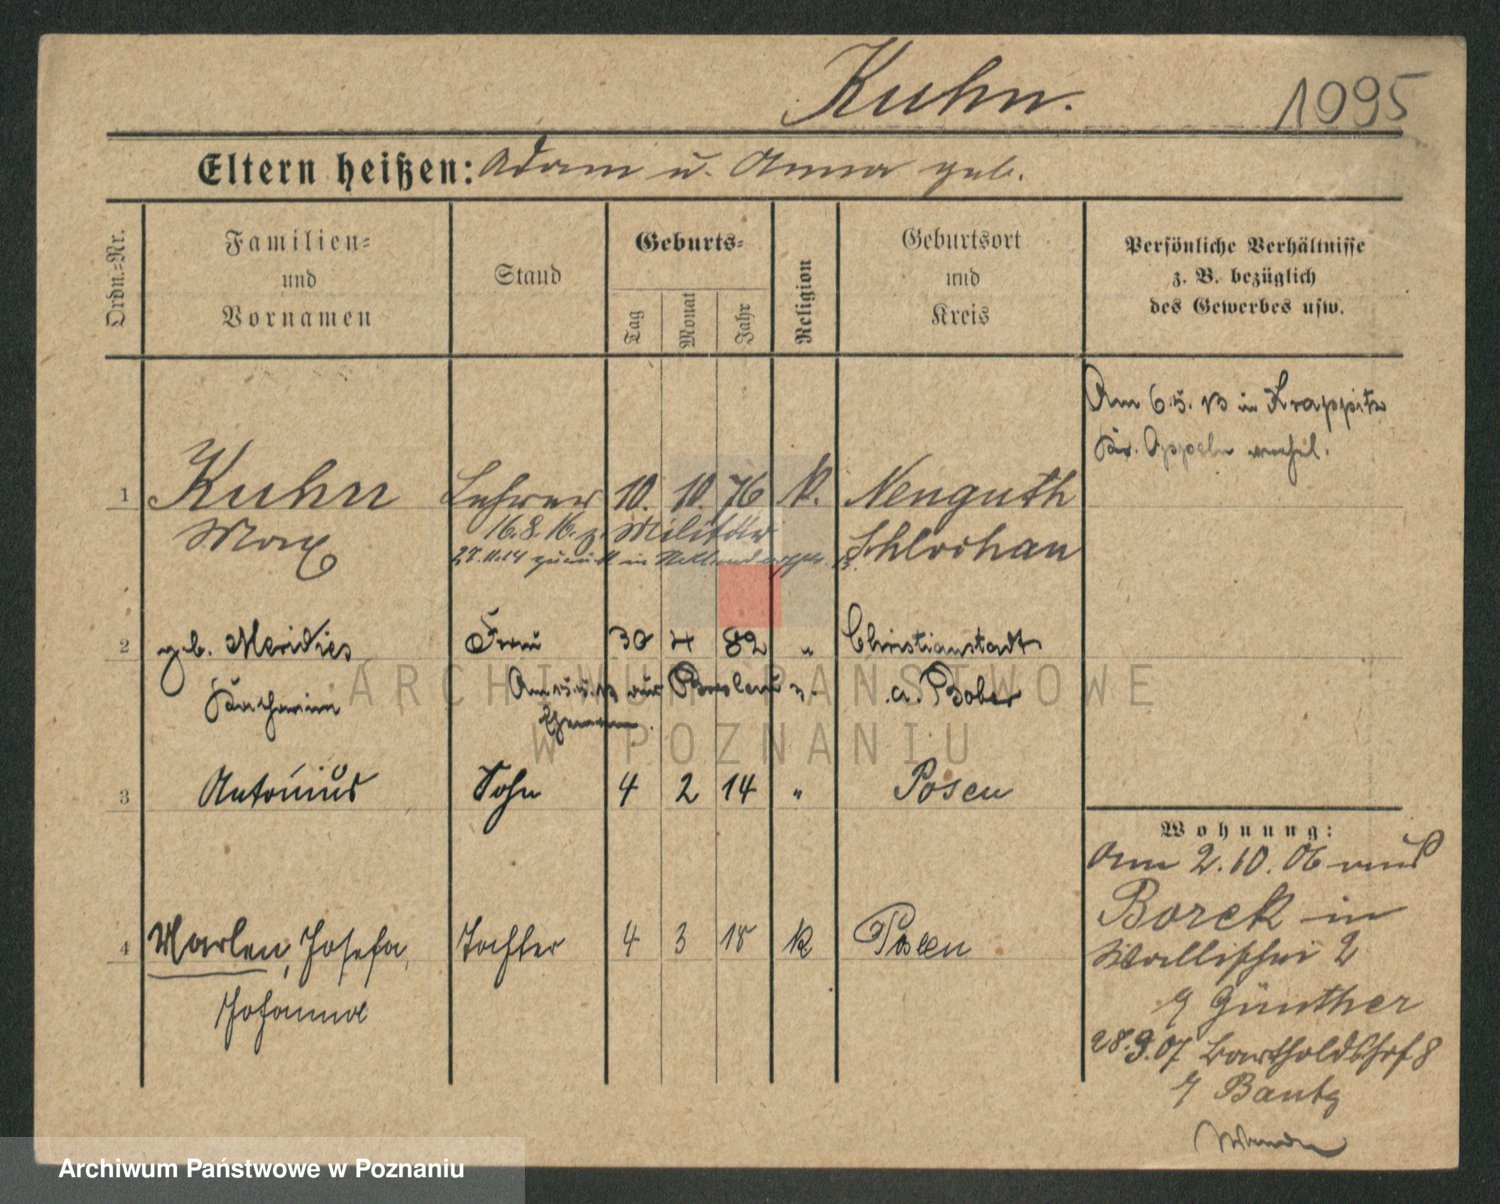 Kuhn. 1095
Eltern heißen: Adam u. Anna geb.
Ordn.-Nr.
Familien-
und
Vornamen
Stand
Geburts-
Tag
Monat
Jahr
Religion
Geburtsort
und
Kreis
Persönliche Verhältnisse
z. B. bezüglich
des Gewerbes usw.
Am 6.5.13 in Krappitz
Kr. Oppeln verehel.
1 Kuhn Lehrer 10. 10. 76 k. Neuguth
Max 16.8.16. z. Militär Schlochau
27.11.14 zurück in
2 geb. Meridies Frau 30 4 82 " Christianstadt
Katharina Am aus Breslau z. a. Bober
Ehemann.
3 Antonius Sohn 4 2 14 " Posen
4 Marlen, Josefa, Tochter 4 3 18 k Posen
Johanna
Wohnung:
Am 2.10.06 aus
Borek in
Wallischei 2
b/ Günther
28.9.07 Bartholdshof 8
b/ Bantz
ARCHIWUM PAŃSTWOWE
W POZNANIU
Archiwum Państwowe w Poznaniu